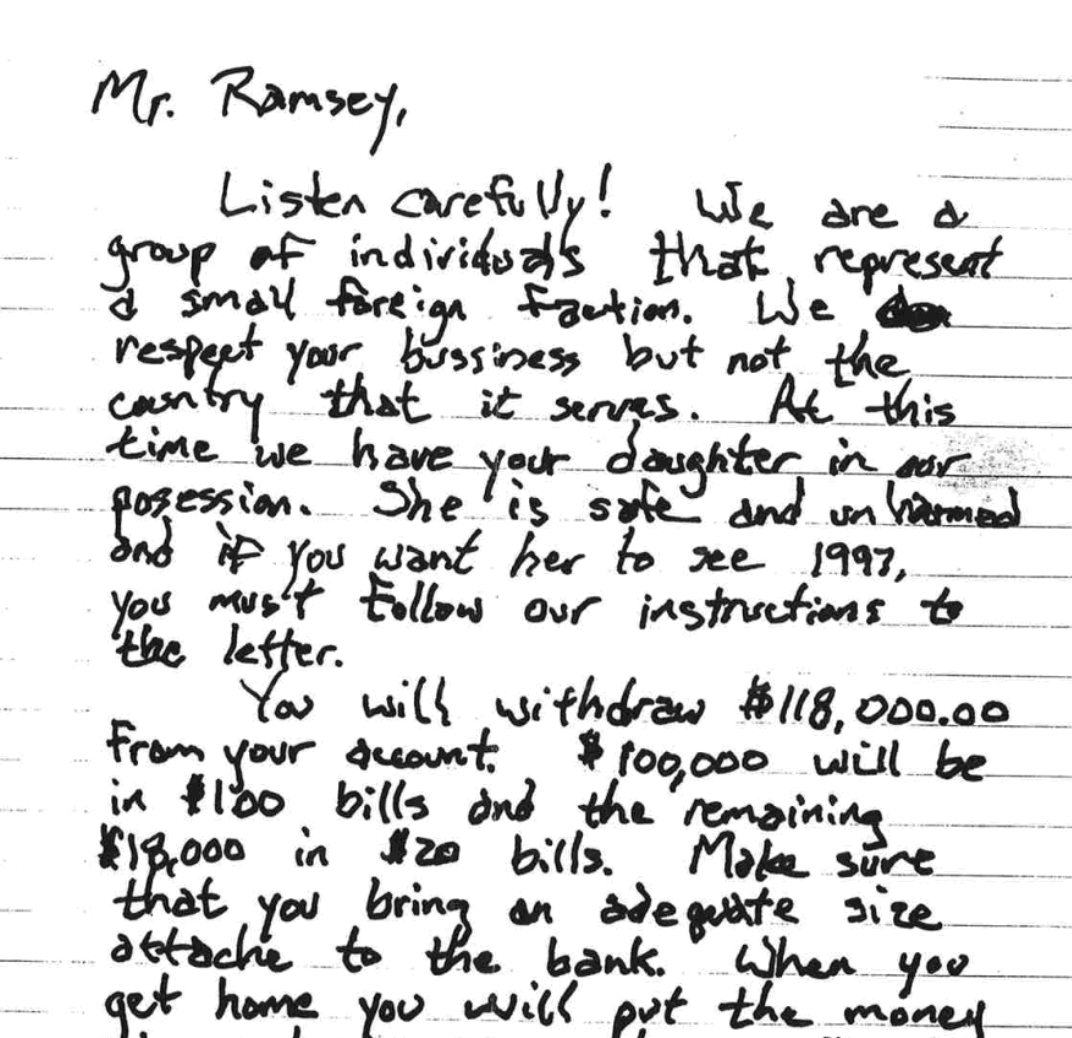 Mr. Ramsey,
Listen carefully! We are a
group of individuals that represent
a small foreign faction. We
respect your bussiness but not the
country that it serves. At this
time we have your daughter in our
posession. She is safe and unharmed
and if you want her to see 1997,
you must follow our instructions to
the letter.
You will withdraw $118,000.00
from your account. $100,000 will be
in $100 bills and the remaining
$18,000 in $20 bills. Make sure
that you bring an adequate size
attache to the bank. When you
get home you will put the money